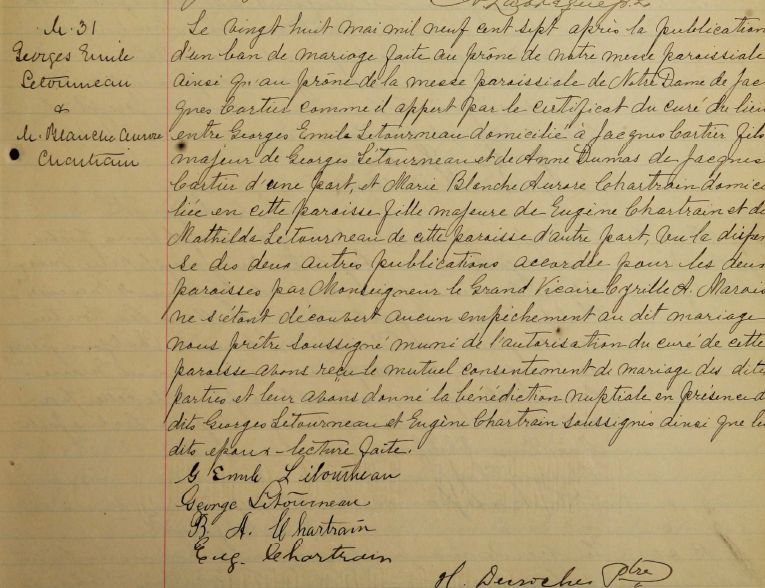 M. 31
Georges Emile
Letourneau
&
M. Blanche Aurore
Chartrain
Le vingt huit mai mil neuf cent sept après la publication
d'un ban de mariage faite au prône de notre messe paroissiale
ainsi qu'au prône de la messe paroissiale de Notre Dame de Jac
ques Cartier comme il appert par le certificat du curé du lieu
entre Georges Emile Letourneau domicilié à Jacques Cartier fils
majeur de Georges Letourneau et de Anne Dumas de Jacques
Cartier d'une part, et Marie Blanche Aurore Chartrain domici
liée en cette paroisse fille majeure de Eugène Chartrain et de
Mathilda Letourneau de cette paroisse d'autre part, vu la dispen
se des deux autres publications accordée pour les deux
paroisses par Monseigneur le Grand Vicaire Cyrille A. Marois
ne s'étant découvert aucun empêchement au dit mariage
nous prêtre soussigné muni de l'autorisation du curé de cette
paroisse avons reçu le mutuel consentement de mariage des dites
parties et leur avons donné la bénédiction nuptiale en présence des
dits Georges Letourneau et Eugène Chartrain soussignés ainsi que les
dits epoux - lecture faite.
G Emile Letourneau
George Letourneau
B. A. Chartrain
Eug. Chartrain
H. Desroches Ptre